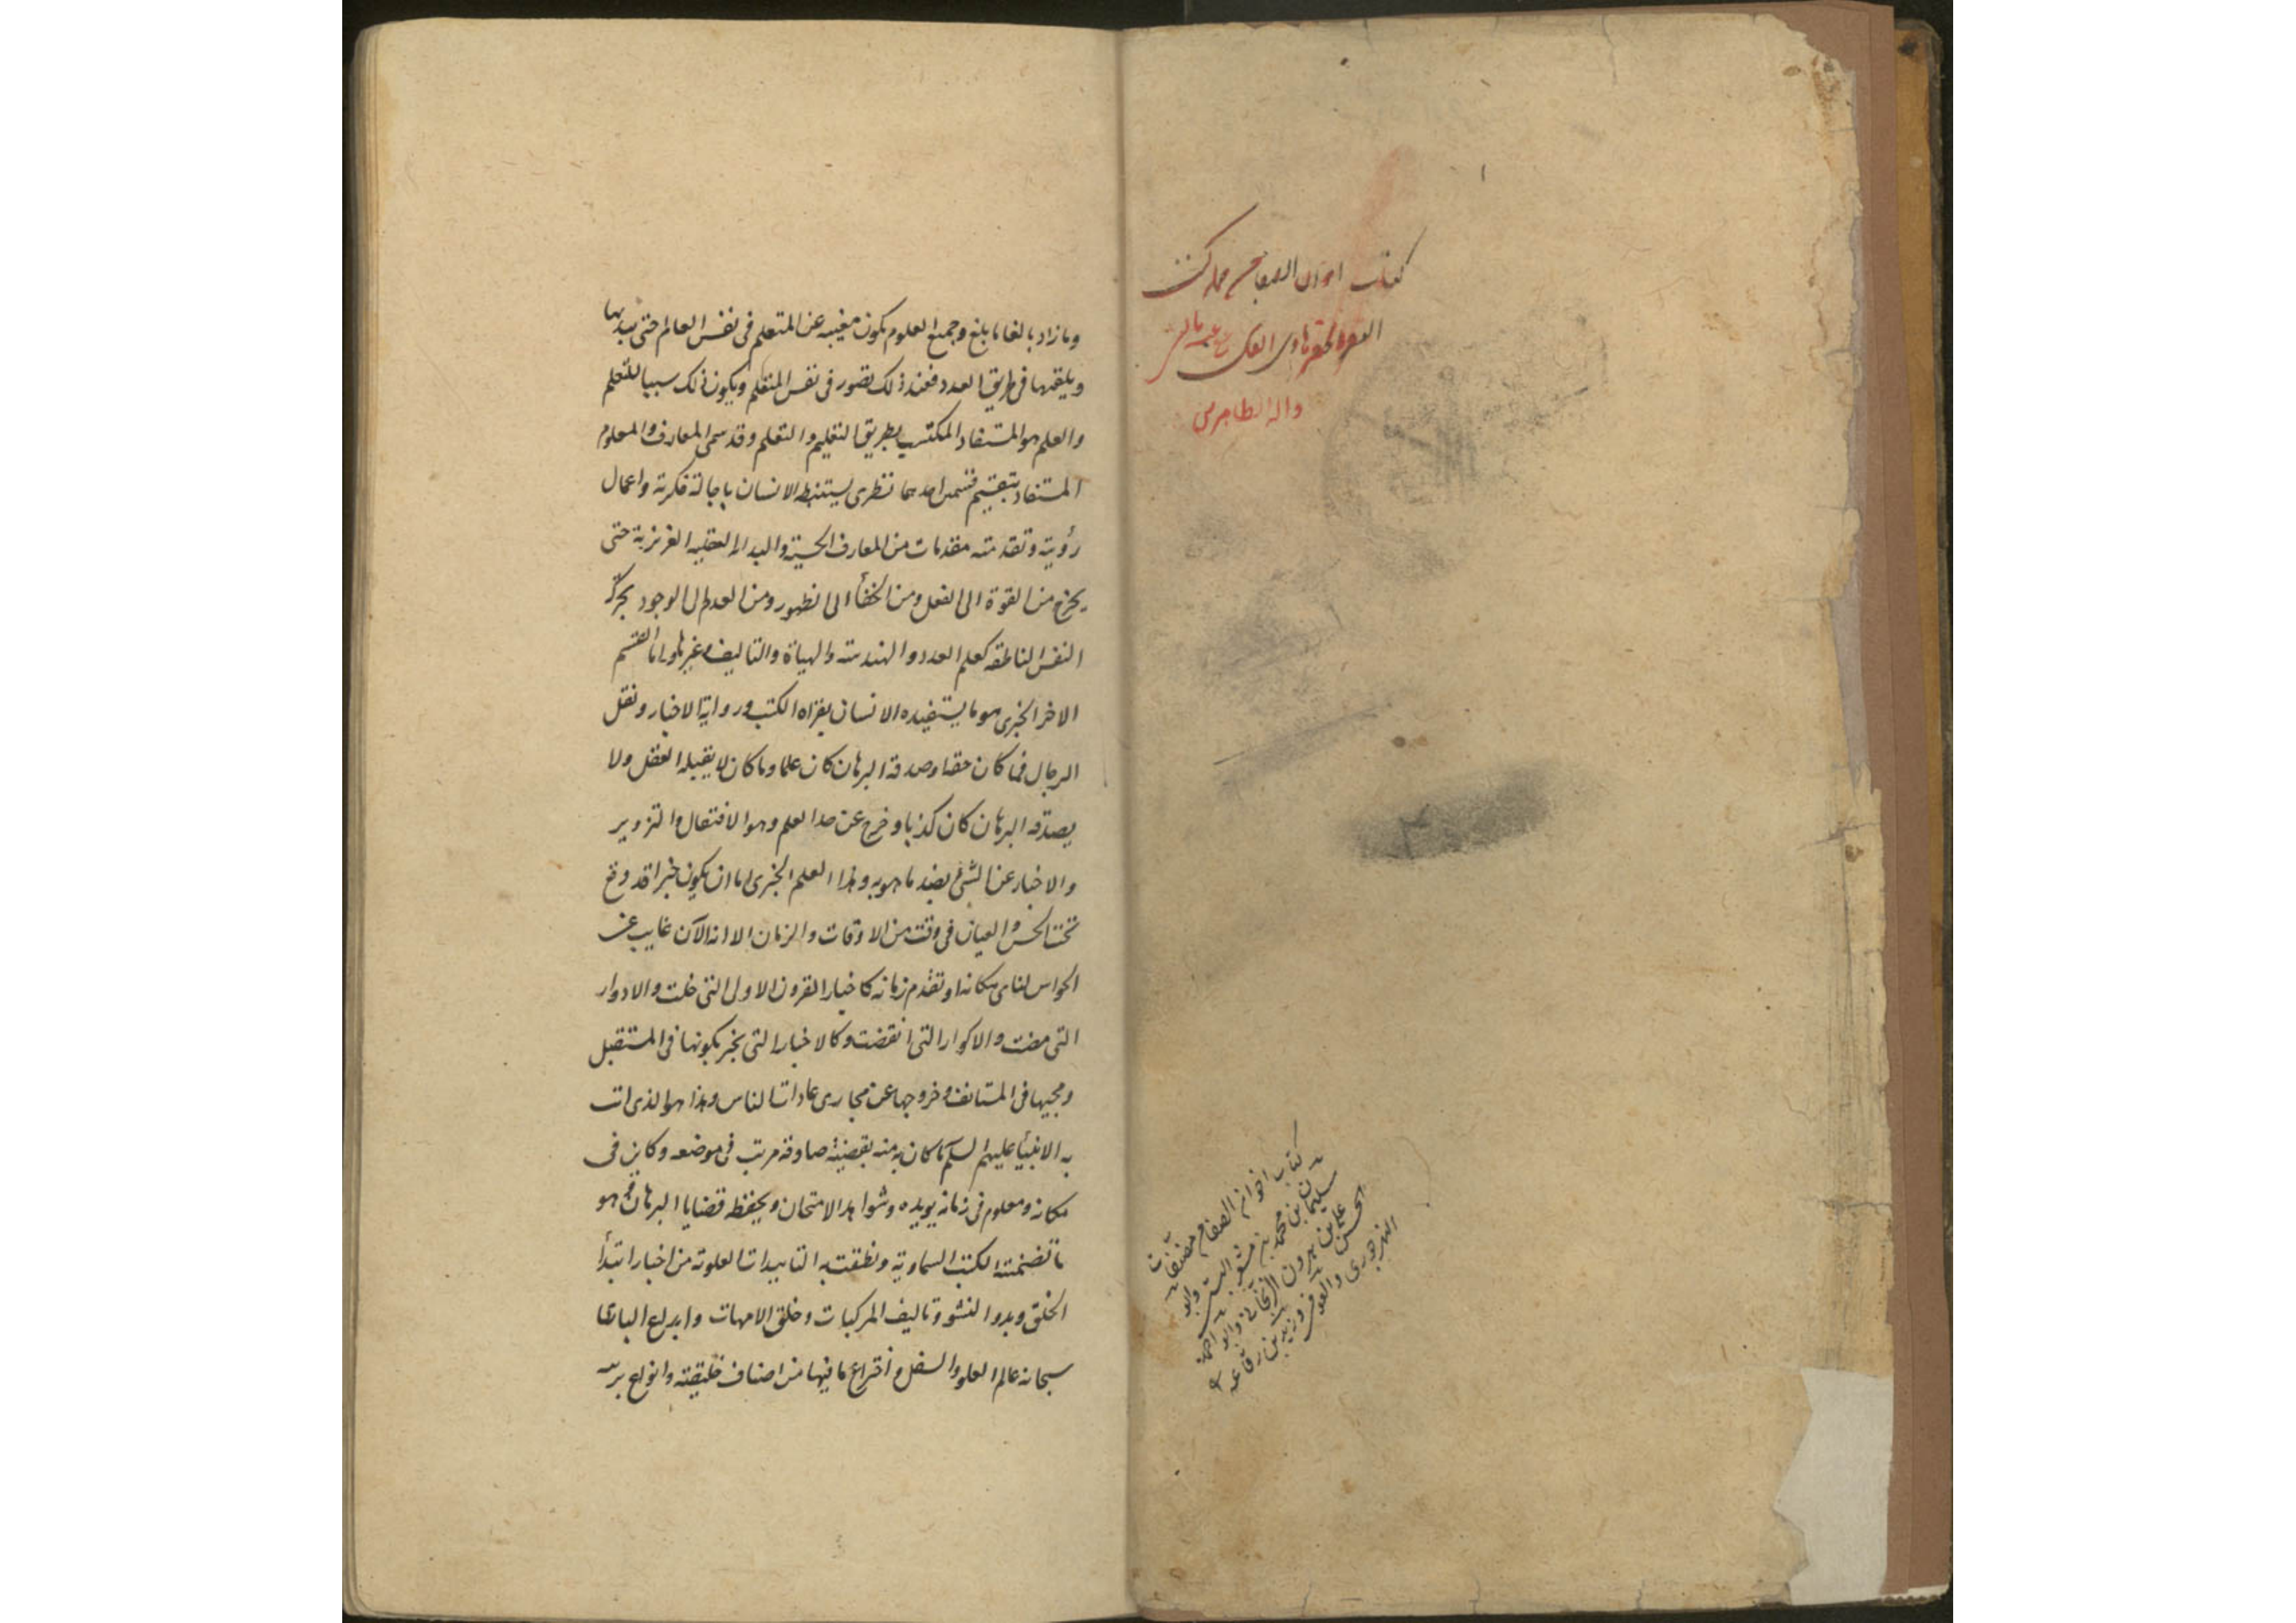 كتاب اخوان الصفا من جمله كتب
واله الطاهرين
كتاب اخوان الصفا من مصنفات
سليمان بن محمد بن مشعر البستى وابو
الحسن على بن هرون الزنجانى وابو احمد
النهرجورى والعوفى وزيد بن رفاعه
وما زاد بالغا ما بلغ وجميع العلوم يكون مغيبه عن المتعلم فى نفس العالم حتى يبديها
ويلقيها فى طريق العدد فعند ذلك تصور فى نفس المتعلم ويكون ذلك سببا للتعلم
والعلم هو المستفاد المكتسب بطريق التعليم والتعلم وقد سمى المعارف والمعلوم
المستفاد بتقسيم قسمين احدهما نظرى يستنبطه الانسان باجالة فكرته واعمال
رؤيته وتقدمته مقدمات من المعارف الحسية والبداية العقليه الغريزية حتى
يخرج من القوة الى الفعل ومن الخفأ الى الظهور ومن العدم الى الوجود بحركة
النفس الناطقه كعلم العدد والهندسته والهياة والتاليف وغيرها واما القسم
الاخر الخبرى هو ما يستفيده الانسان بقراه الكتب ورواية الاخبار ونقل
الرجال فما كان حقا وصدقه البرهان كان علما وما كان لا يقبله العقل ولا
يصدقه البرهان كان كذبا وخرج عن حد العلم وهو الافتعال والتزوير
والاخبار عن الشئ بضد ما هو به وهذا العلم الخبرى اما ان يكون خبرا قد وقع
تحت الحس والعيان فى وقت من الاوقات والزمان الا انه الآن غايب عن
الحواس لتناى مكانه او تقدم زمانه كاخبار القرون الاول التى خلت والادوار
التى مضت والاكوار التى انقضت وكالاخبار التى يخبر بكونها فى المستقبل
ومجيها فى المستانف وخروجها عن مجارى عادات الناس وهذا هو الذى اتت
به الانبيأ عليهم السلم ما كان منه بقضية صادقه مرتب فى موضعه وكاين فى
مكانه ومعلوم فى زمانه يويده وشواهد الامتحان ويحفظه قضايا البرهان فهو
ما تضمنته الكتب السماوية ونطقت به التاييدات العلوته من اخبار ابتدأ
الخلق وبدو النشو وتاليف المركبات وخلق الامهات وابداع البارى
سبحانه عالم العلو والسفل واختراع ما فيها من اصناف خليقته وانواع بريته